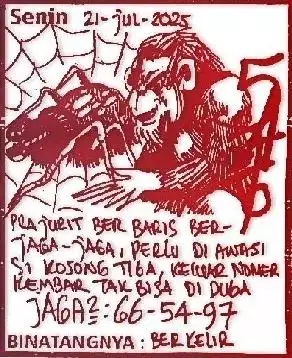 Senin 21-jul-2025
5
4
6
PRAJURIT BER BARIS BER-
JAGA-JAGA, PERLU DI AWASI
SI KOSONG TIGA, KELUAR NOMER
KEMBAR TAK BISA DI DUGA
JAGA²: 66-54-97
BINATANGNYA : BERKELIR